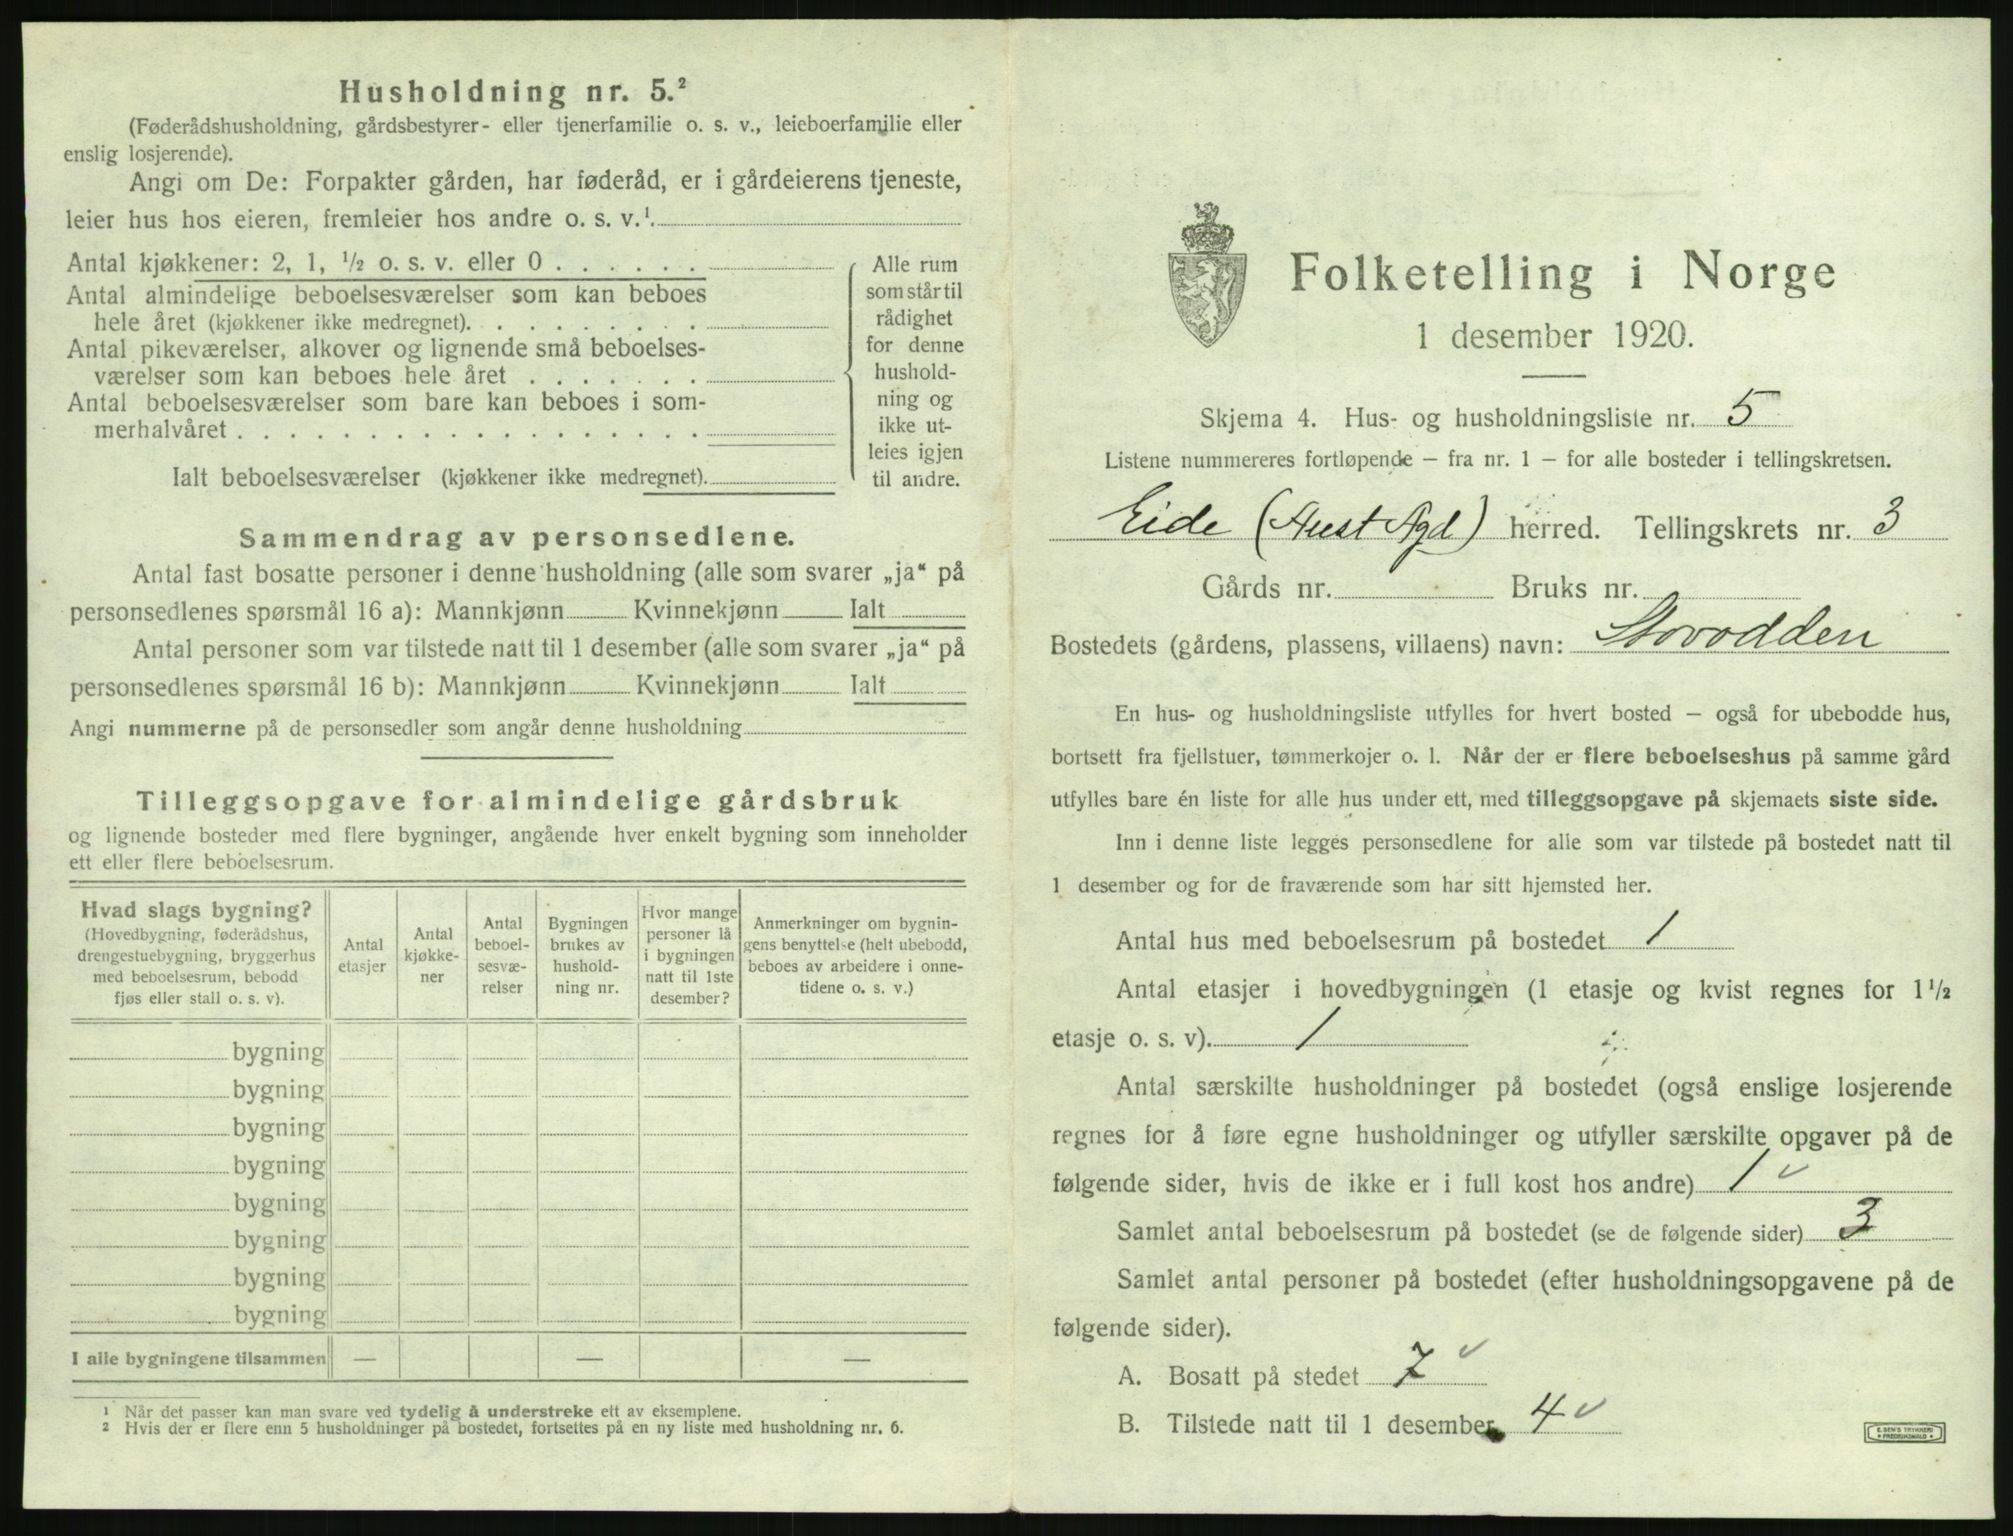 Husholdning nr. 5.²
(Føderådshusholdning, gårdsbestyrer- eller tjenerfamilie o. s. v., leieboerfamilie eller
enslig losjerende).
Angi om De: Forpakter gården, har føderåd, er i gårdeierens tjeneste,
leier hus hos eieren, fremleier hos andre o. s. v.¹
Antal kjøkkener: 2, 1, ½ o. s. v. eller 0 . . . . . .
Antal almindelige beboelsesværelser som kan beboes
hele året (kjøkkener ikke medregnet). . . . . . . . .
Antal pikeværelser, alkover og lignende små beboelses-
værelser som kan beboes hele året . . . . . . .
Antal beboelsesværelser som bare kan beboes i som-
merhalvåret . . . . . . . . . . . . . . . . . .
Ialt beboelsesværelser (kjøkkener ikke medregnet).
Alle rum
som står til
rådighet
for denne
hushold-
ning og
ikke ut-
leies igjen
til andre.
Sammendrag av personsedlene.
Antal fast bosatte personer i denne husholdning (alle som svarer „ja“ på
personsedlenes spørsmål 16 a): Mannkjønn Kvinnekjønn Ialt
Antal personer som var tilstede natt til 1 desember (alle som svarer „ja“ på
personsedlenes spørsmål 16 b): Mannkjønn Kvinnekjønn Ialt
Angi nummerne på de personsedler som angår denne husholdning
Tilleggsopgave for almindelige gårdsbruk
og lignende bosteder med flere bygninger, angående hver enkelt bygning som inneholder
ett eller flere beboelsesrum.
Hvad slags bygning?
(Hovedbygning, føderådshus,
drengestuebygning, bryggerhus
med beboelsesrum, bebodd
fjøs eller stall o. s. v).
Antal
etasjer
Antal
kjøkke-
ner
Antal
beboel-
sesvæ-
relser
Bygningen
brukes av
hushold-
ning nr.
Hvor mange
personer lå
i bygningen
natt til 1ste
desember?
Anmerkninger om bygnin-
gens benyttelse (helt ubebodd,
beboes av arbeidere i onne-
tidene o. s. v.)
bygning
bygning
bygning
bygning
bygning
bygning
bygning
bygning
I alle bygningene tilsammen — — —
¹ Når det passer kan man svare ved tydelig å understreke ett av eksemplene.
² Hvis der er flere enn 5 husholdninger på bostedet, fortsettes på en ny liste med husholdning nr. 6.
Folketelling i Norge
1 desember 1920.
Skjema 4. Hus- og husholdningsliste nr. 5
Listene nummereres fortløpende — fra nr. 1 — for alle bosteder i tellingskretsen.
Eide (Aust Agd) herred. Tellingskrets nr. 3
Gårds nr. Bruks nr.
Bostedets (gårdens, plassens, villaens) navn: Storodden
En hus- og husholdningsliste utfylles for hvert bosted — også for ubebodde hus,
bortsett fra fjellstuer, tømmerkojer o. l. Når der er flere beboelseshus på samme gård
utfylles bare én liste for alle hus under ett, med tilleggsopgave på skjemaets siste side.
Inn i denne liste legges personsedlene for alle som var tilstede på bostedet natt til
1 desember og for de fraværende som har sitt hjemsted her.
Antal hus med beboelsesrum på bostedet 1
Antal etasjer i hovedbygningen (1 etasje og kvist regnes for 1½
etasje o. s. v). 1
Antal særskilte husholdninger på bostedet (også enslige losjerende
regnes for å føre egne husholdninger og utfyller særskilte opgaver på de
følgende sider, hvis de ikke er i full kost hos andre) 1 ✓
Samlet antal beboelsesrum på bostedet (se de følgende sider) 3
Samlet antal personer på bostedet (efter husholdningsopgavene på de
følgende sider).
A. Bosatt på stedet 7 ✓
B. Tilstede natt til 1 desember 4 ✓
E. SEM'S TRYKKERI
FREDRIKSHALD